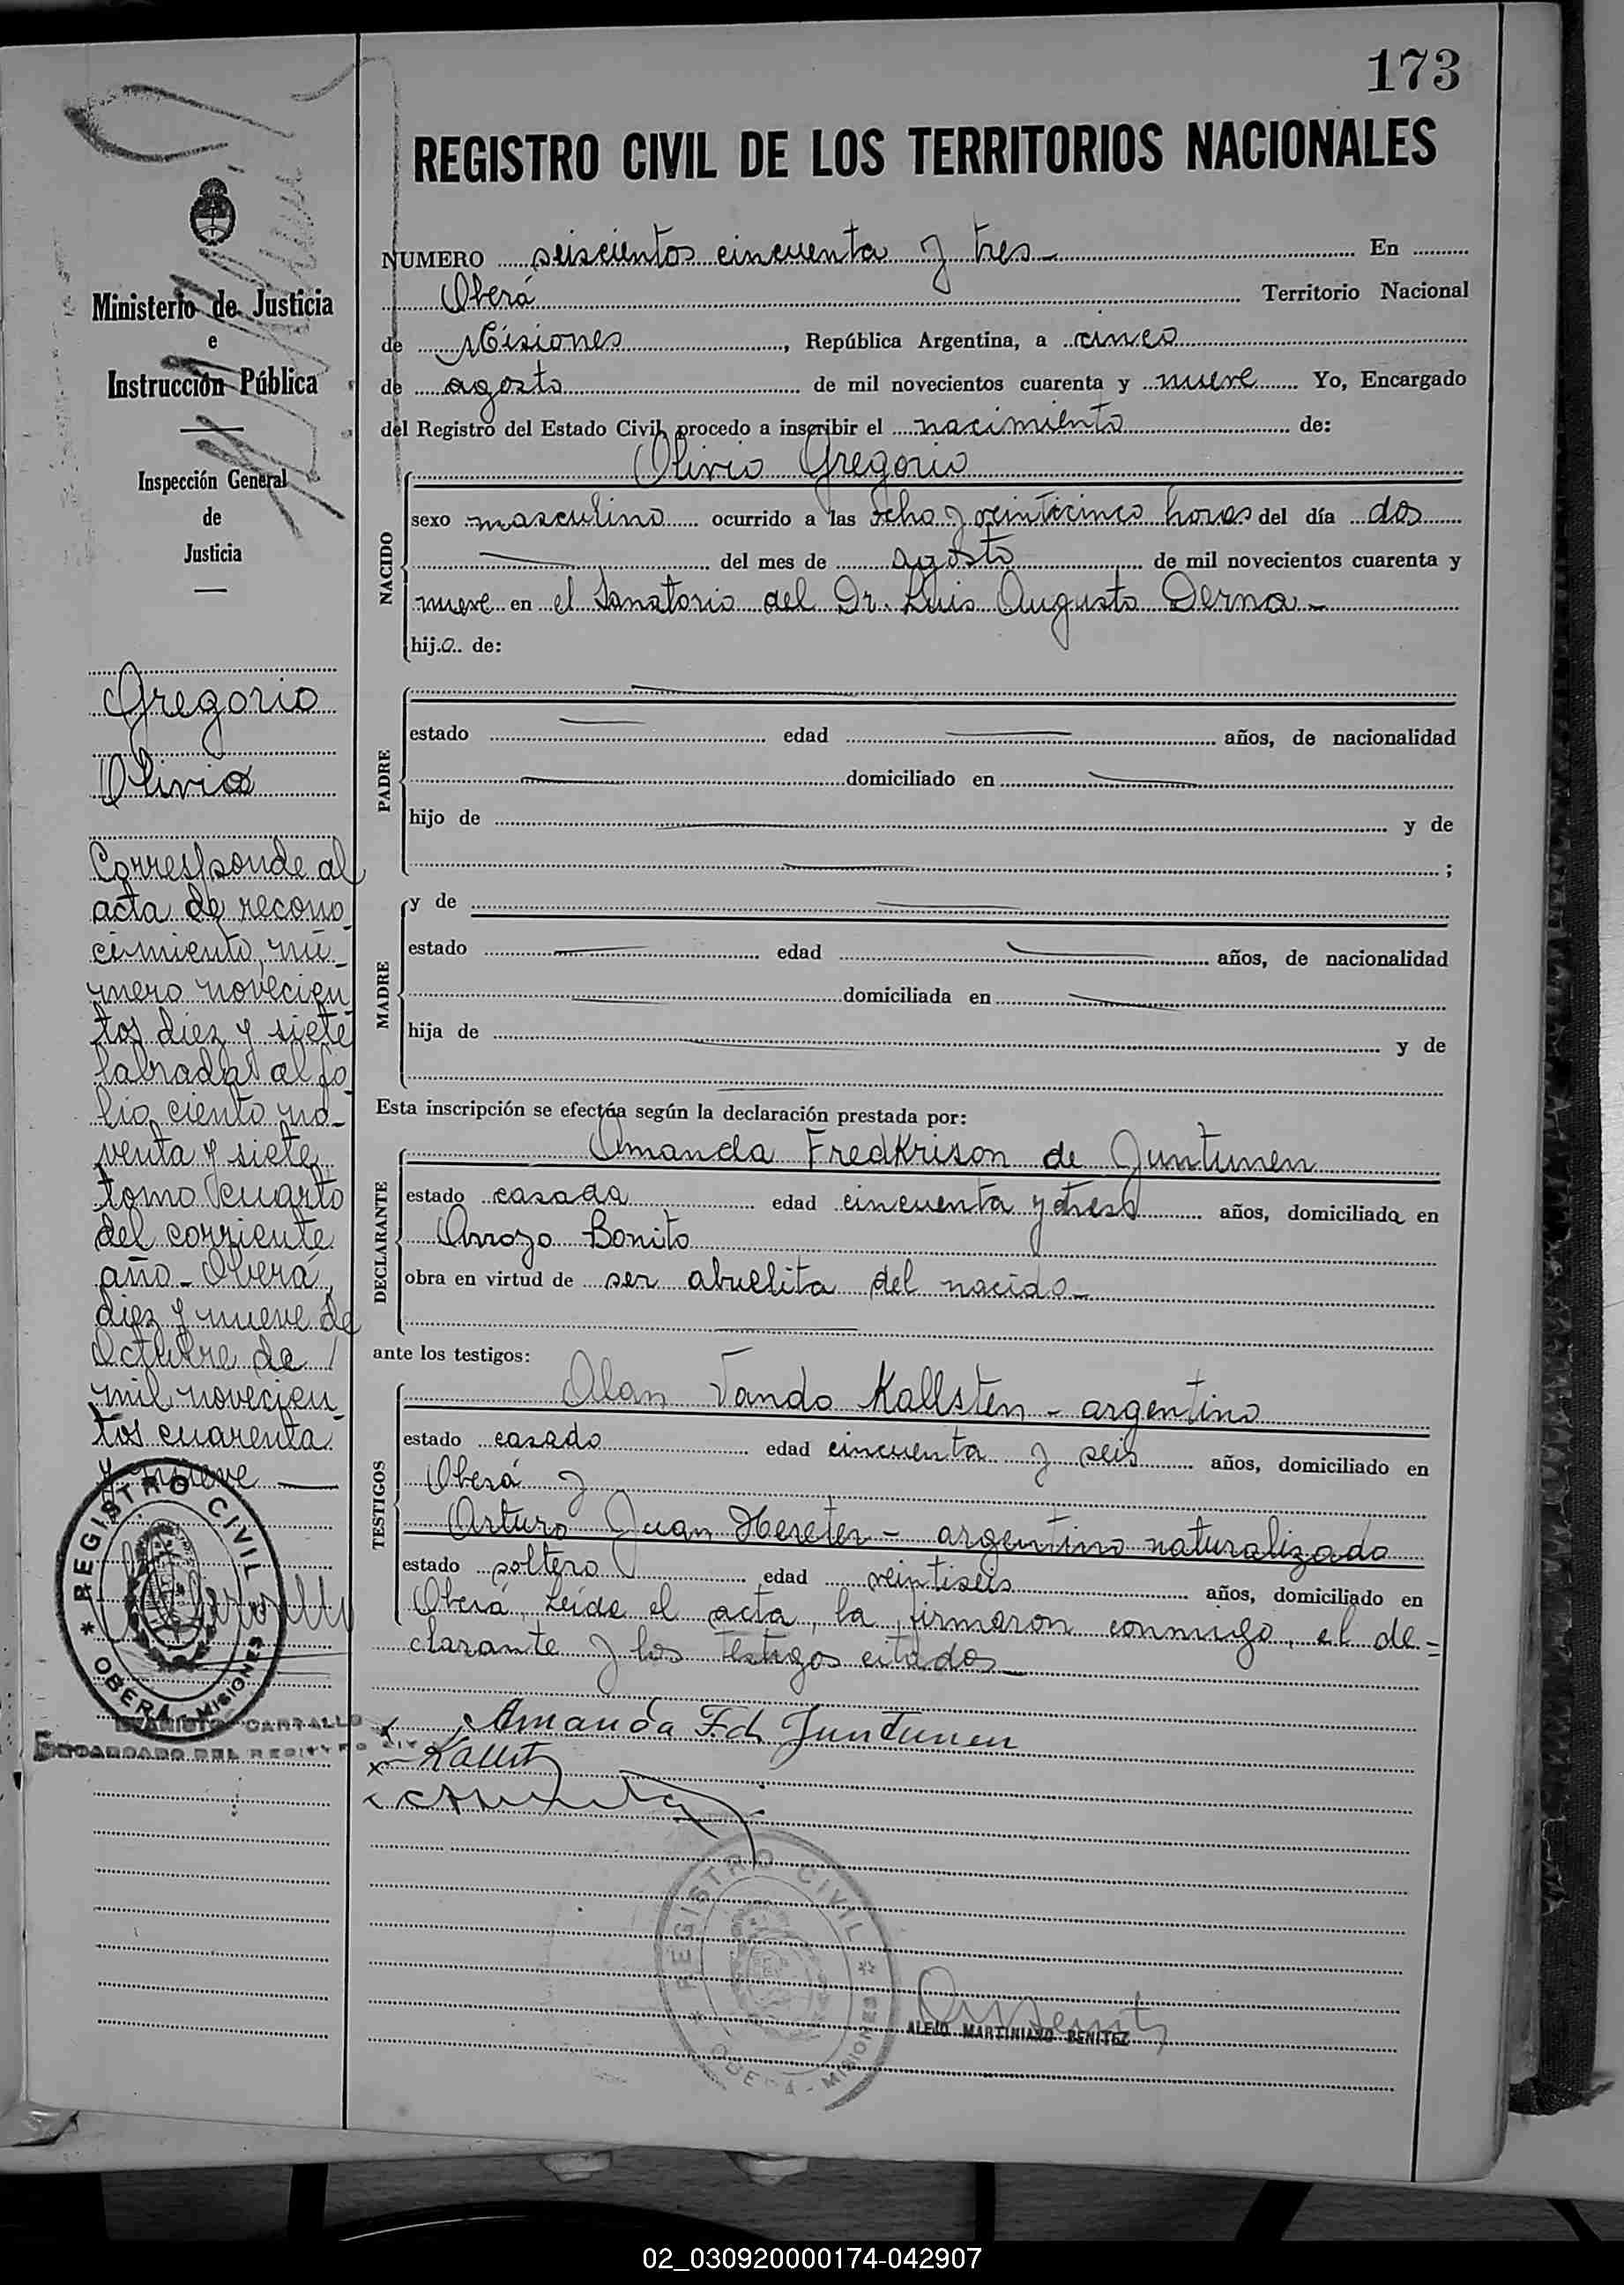 173
REGISTRO CIVIL DE LOS TERRITORIOS NACIONALES
Ministerio de Justicia
e
Instrucción Pública
Inspección General
de
Justicia
Gregorio
Olivio
Corresponde al
acta de recono
cimiento, nú-
mero novecien
tos diez y siete
labrada al fo
lio ciento no-
venta y siete
tomo cuarto
del corriente
año - Oberá,
diez y nueve de
Octubre de
mil novecien
tos cuarenta
y nueve
REGISTRO CIVIL
OBERÁ - MISIONES
ENCARGADO DEL REGISTRO CIV
NUMERO seiscientos cincuenta y tres - En
Oberá Territorio Nacional
de Misiones, República Argentina, a cinco
de agosto de mil novecientos cuarenta y nueve Yo, Encargado
del Registro del Estado Civil, procedo a inscribir el nacimiento de:
NACIDO
Olivio Gregorio
sexo masculino ocurrido a las ocho y veinticinco horas del día dos
del mes de agosto de mil novecientos cuarenta y
nueve en el Sanatorio del Dr. Luis Augusto Derna -
hijo de:
PADRE
estado edad años, de nacionalidad
domiciliado en
hijo de y de
;
MADRE
y de
estado edad años, de nacionalidad
domiciliada en
hija de y de
Esta inscripción se efectúa según la declaración prestada por:
DECLARANTE
Amanda Fredkrison de Juntunen
estado casada edad cincuenta y tres años, domiciliada en
Arroyo Bonito
obra en virtud de ser abuelita del nacido -
ante los testigos:
TESTIGOS
Alan Vando Kallsten - argentino
estado casado edad cincuenta y seis años, domiciliado en
Oberá y
Arturo Juan Hereter - argentino naturalizado
estado soltero edad veintiseis años, domiciliado en
Oberá, Leída el acta, la firmaron conmigo, el de-
clarante y los testigos citados -
x Amanda Fd Juntunen
x Kallst
REGISTRO CIVIL
OBERÁ - MISIONES
ALEJO MARTINIANO BENITEZ
02_030920000174-042907